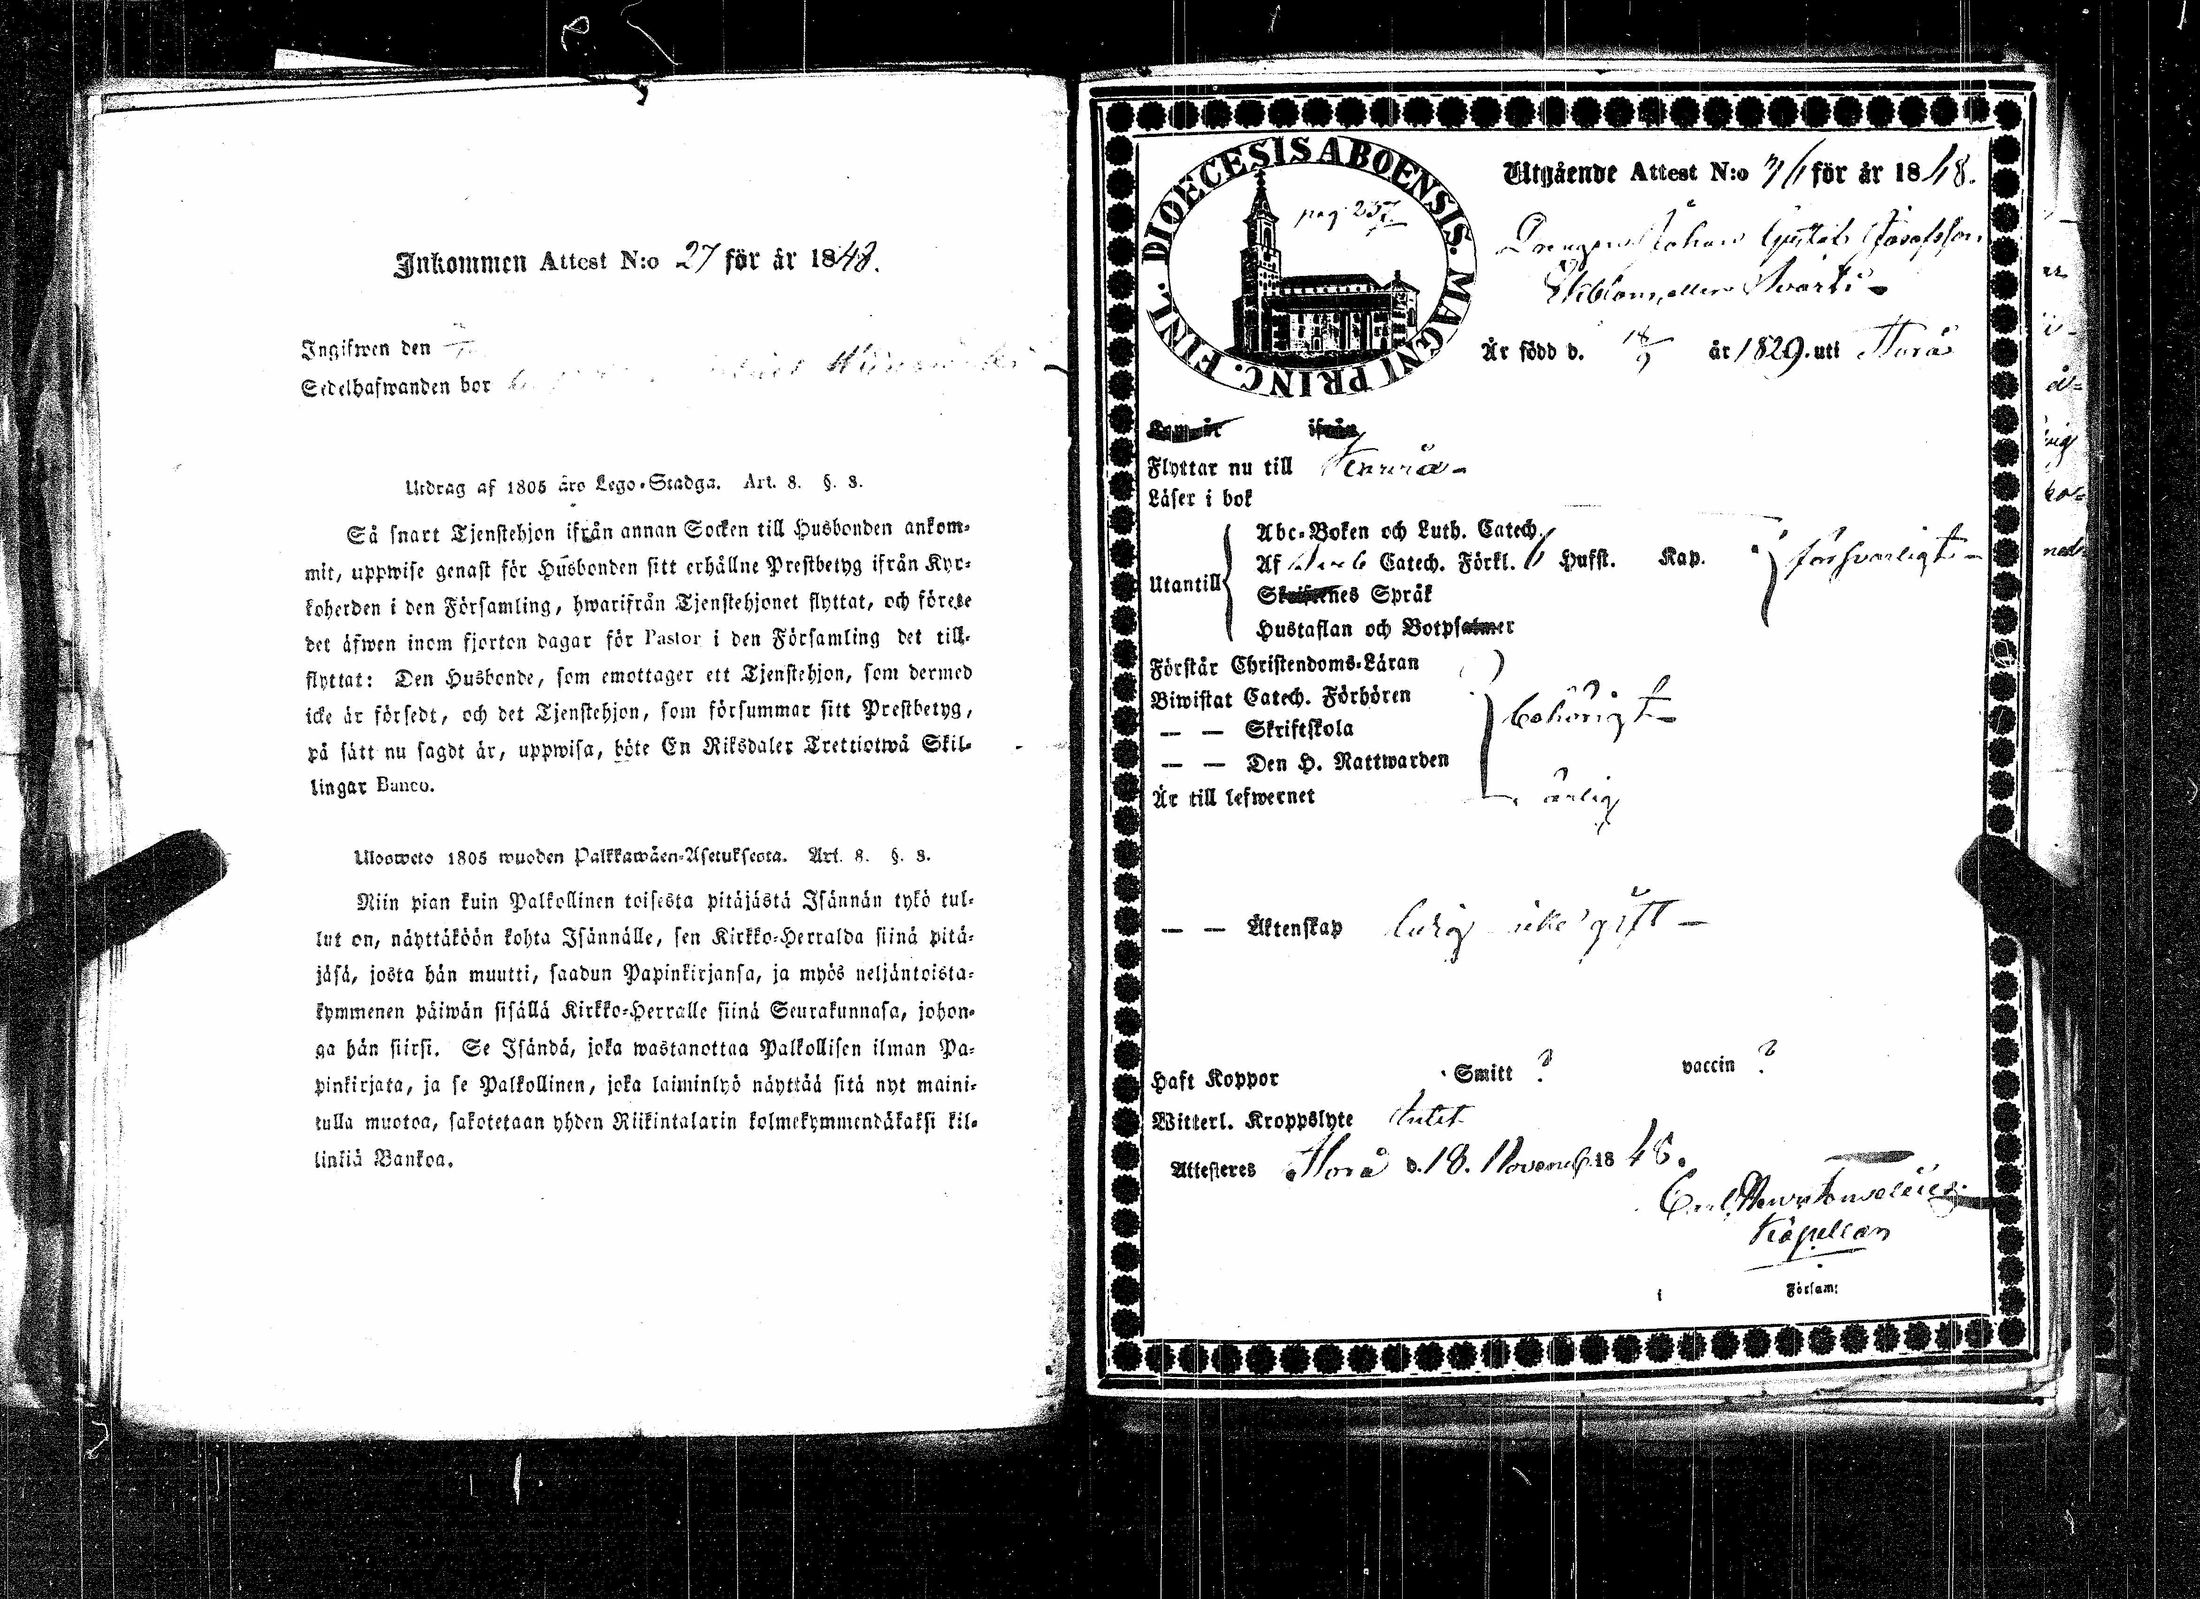 Inkommen Attest N:o 27 för år 1848.
Ingifwen den
Sedelhafwanden bor
Utdrag af 1805 års Lego-Stadga. Art. 8. §. 3.
Så snart Tjenstehjon ifrån annan Socken till Husbonden ankom-
mit, uppwise genast för Husbonden sitt erhållne Prestbetyg ifrån Kyr-
koherden i den Församling, hwarifrån Tjenstehjonet flyttat, och förete
det äfwen inom fjorton dagar för Pastor i den Församling det till-
flyttat: Den Husbonde, som emottager ett Tjenstehjon, som dermed
icke är försedt, och det Tjenstehjon, som försummar sitt Prestbetyg,
på sätt nu sagdt är, uppwisa, böte En Riksdaler Trettiotwå Skil-
lingar Banco.
Ulosweto 1805 wuoden Palkkawäen-Asetuksesta. Art. 8. §. 3.
Niin pian kuin Palkollinen toisesta pitäjästä Isännän tykö tul-
lut on, näyttäköön kohta Isännälle, sen Kirkko-Herralda siinä pitä-
jäsä, josta hän muutti, saadun Papinkirjansa, ja myös neljäntoista-
kymmenen päiwän sisällä Kirkko-Herralle siinä Seurakunnasa, johon-
ga hän siirsi. Se Isändä, joka wastanottaa Palkollisen ilman Pa-
pinkirjata, ja se Palkollinen, joka laiminlyö näyttää sitä nyt maini-
tulla muotoa, sakotetaan yhden Riikintalarin kolmekymmendäkaksi kil-
linkiä Bankoa.
DIOECESIS ABOENSIS. MAGNI PRINC. FINL.
pag 237
Utgående Attest N:o 76 för år 1848.
Drengen Johan Gustaf Josefsson
Ekblom, eller Svart
Är född d. 18/9 år 1829. uti Norå
Flyttar nu till
Läser i bok
Utantill
Abc-Boken och Luth. Catech.
Af Sveb Catech. Förkl. Hufst. Kap.
försvarligt
Skriftenes Språk
Hustaflan och Botpsalmer
Förstår Christendoms-Läran
Biwistat Catech. Förhören
behörigt
— — Skriftskola
— — Den H. Nattwarden
Är till lefwernet ärlig
— — Äktenskap ledig icke gift
Haft Koppor Smitt ? vaccin ?
Witterl. Kroppslyte Intet
Attesteres Norå d. 18. Novemb 1848.
Kapellan
i Församl